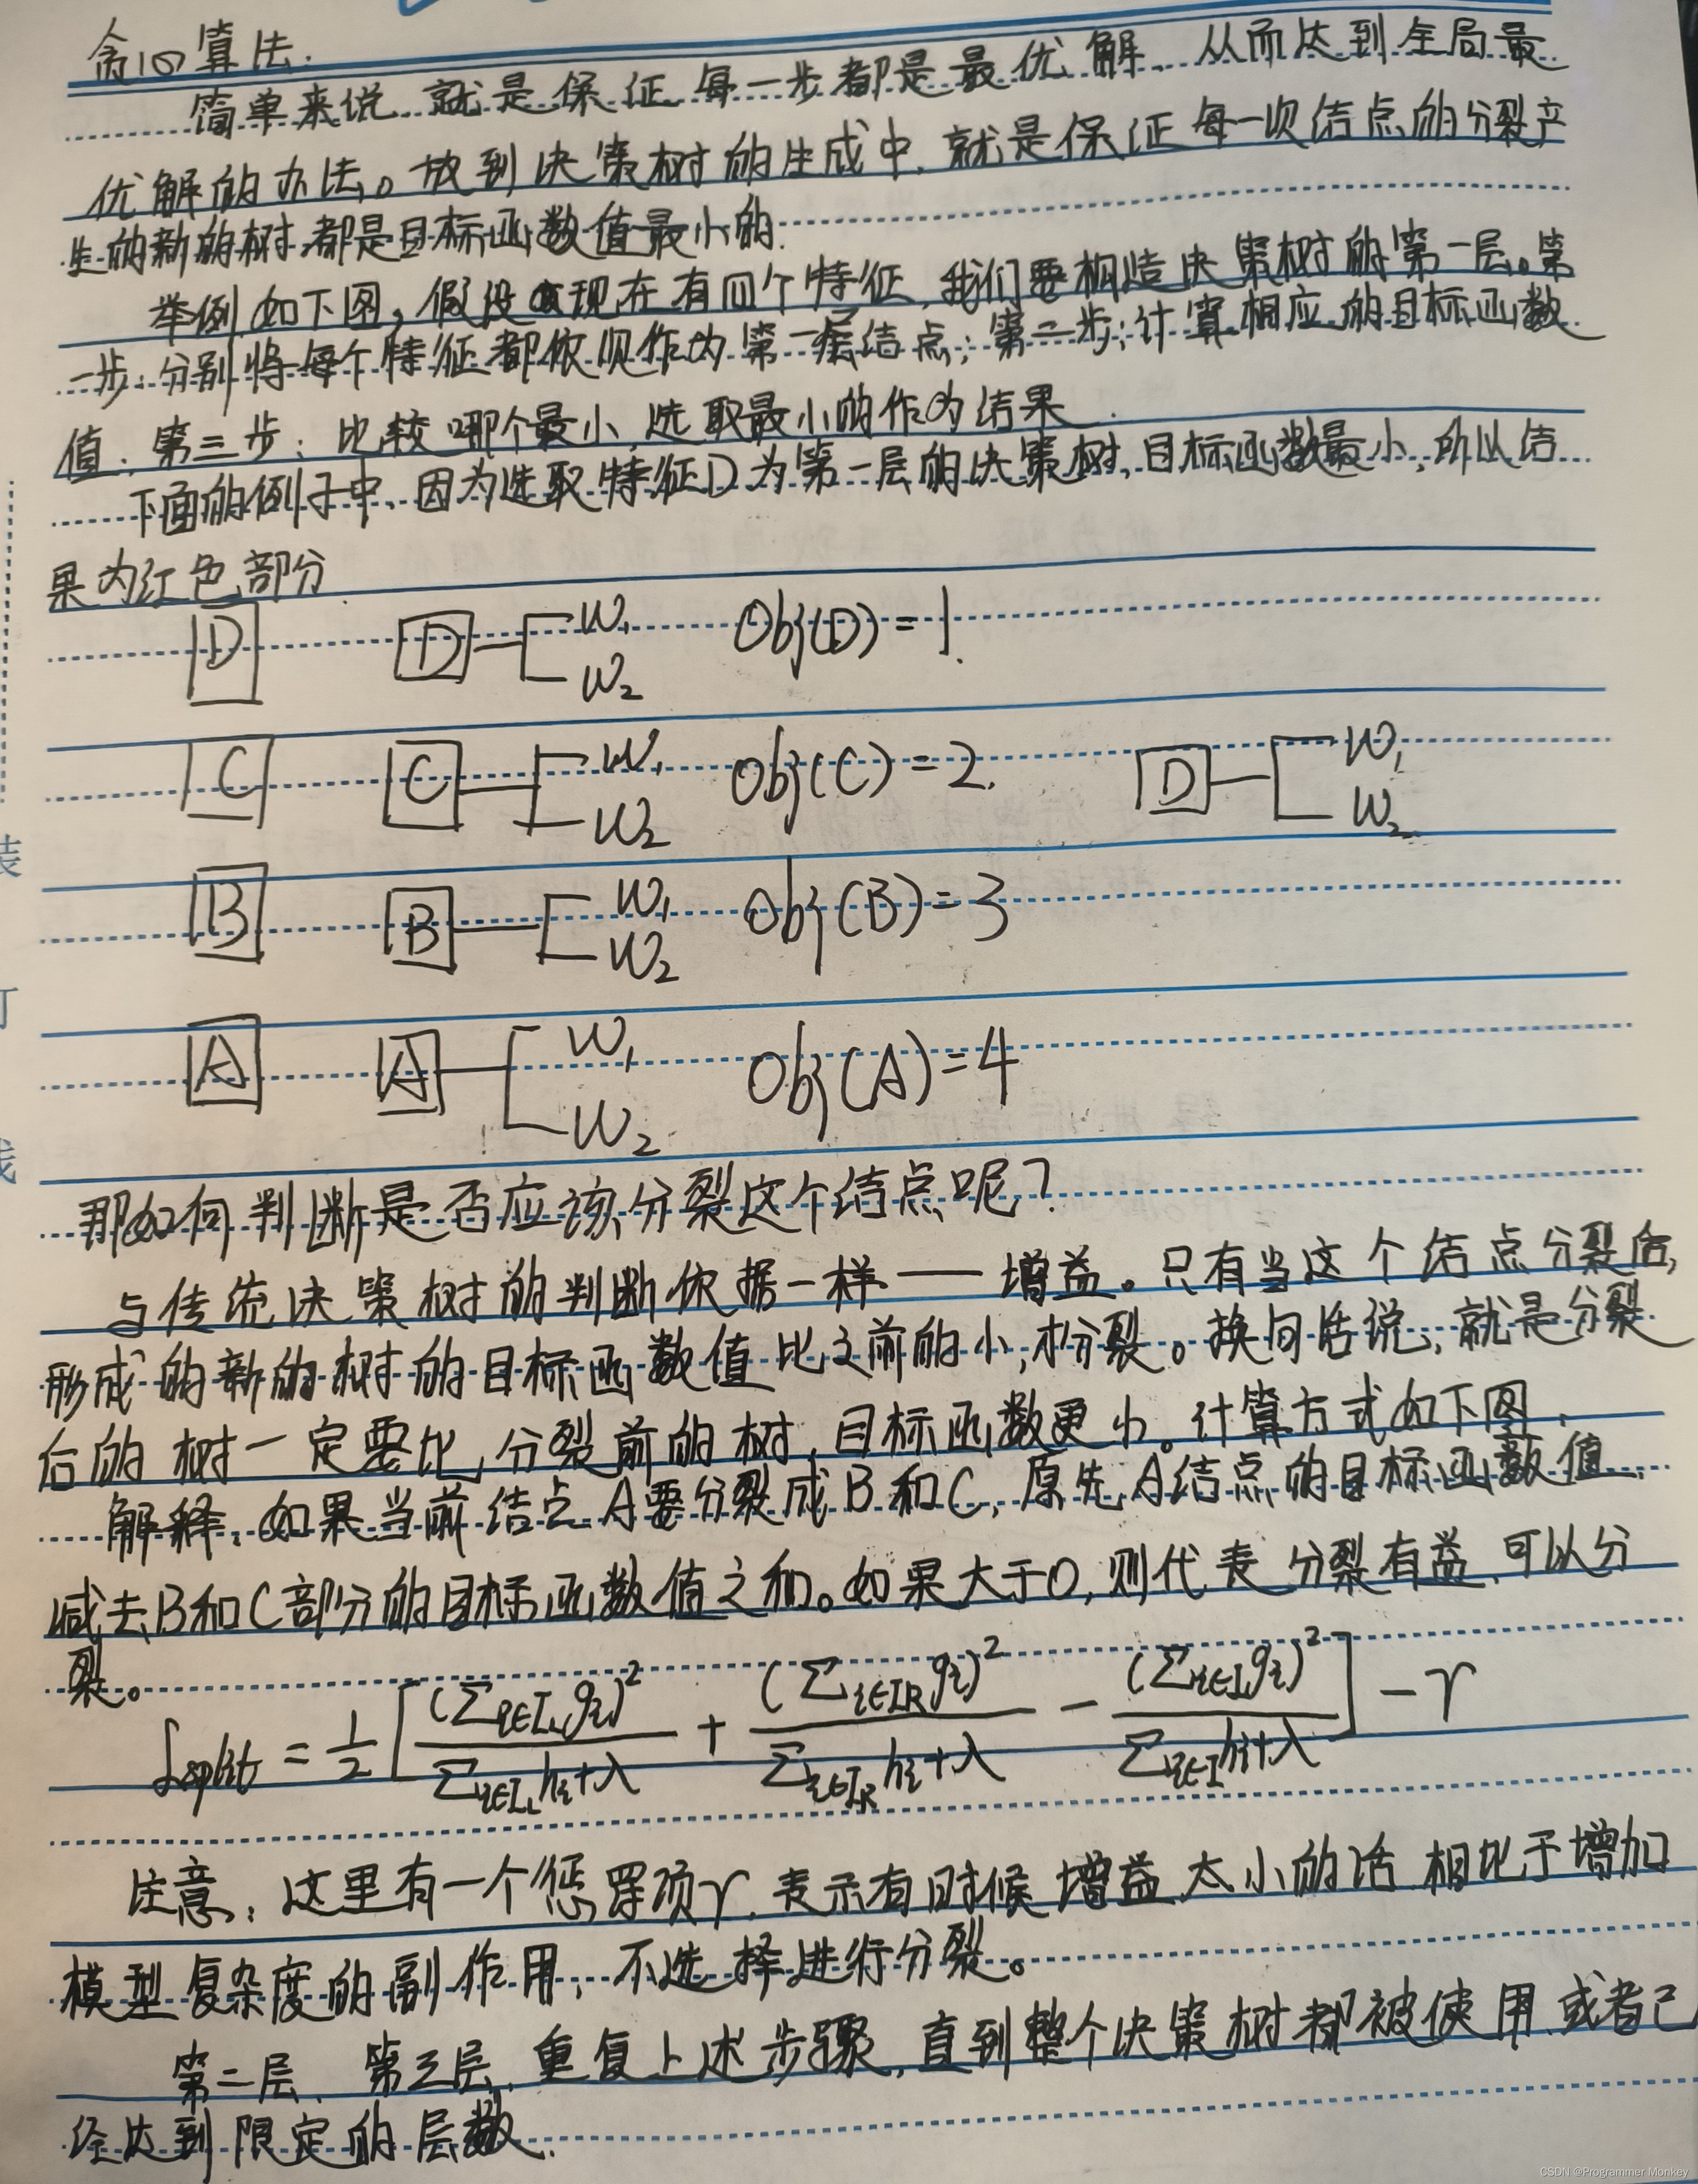 贪心算法.
简单来说,就是保证每一步都是最优解、从而达到全局最
优解的办法。放到决策树的生成中,就是保证每一次结点的分裂产
生的新的树,都是目标函数值最小的.
举例如下图,假设现在有四个特征,我们要构造决策树的第一层。第
一步:分别将每个特征都依次作为第一层结点;第二步:计算相应的目标函数
值;第三步:比较哪个最小,选取最小的作为结果.
下面的例子中,因为选取特征D为第一层的决策树,目标函数最小,所以结
果为红色部分.
D D W₁ W₂ Obj(D)=1.
C C W₁ W₂ Obj(C)=2. D W₁ W₂
B B W₁ W₂ Obj(B)=3
A A W₁ W₂ Obj(A)=4
那如何判断是否应该分裂这个结点呢?
与传统决策树的判断依据一样——增益。只有当这个结点分裂后,
形成的新的树的目标函数值比之前的小,才分裂。换句话说,就是分裂
后的树一定要比分裂前的树,目标函数更小。计算方式如下图.
解释:如果当前结点A要分裂成B和C,原先A结点的目标函数值
减去B和C部分的目标函数值之和。如果大于0,则代表分裂有益,可以分
裂。
L_split = 1/2 [ (Σ_{i∈I_L} g_i)² / (Σ_{i∈I_L} h_i+λ) + (Σ_{i∈I_R} g_i)² / (Σ_{i∈I_R} h_i+λ) − (Σ_{i∈I} g_i)² / (Σ_{i∈I} h_i+λ) ] − γ
注意:这里有一个惩罚项γ.表示有时候增益太小的话,相比于增加
模型复杂度的副作用,不选择进行分裂。
第二层、第三层,重复上述步骤,直到整个决策树都被使用.或者已
经达到限定的层数.
装
订
线
CSDN @Programmer Monkey